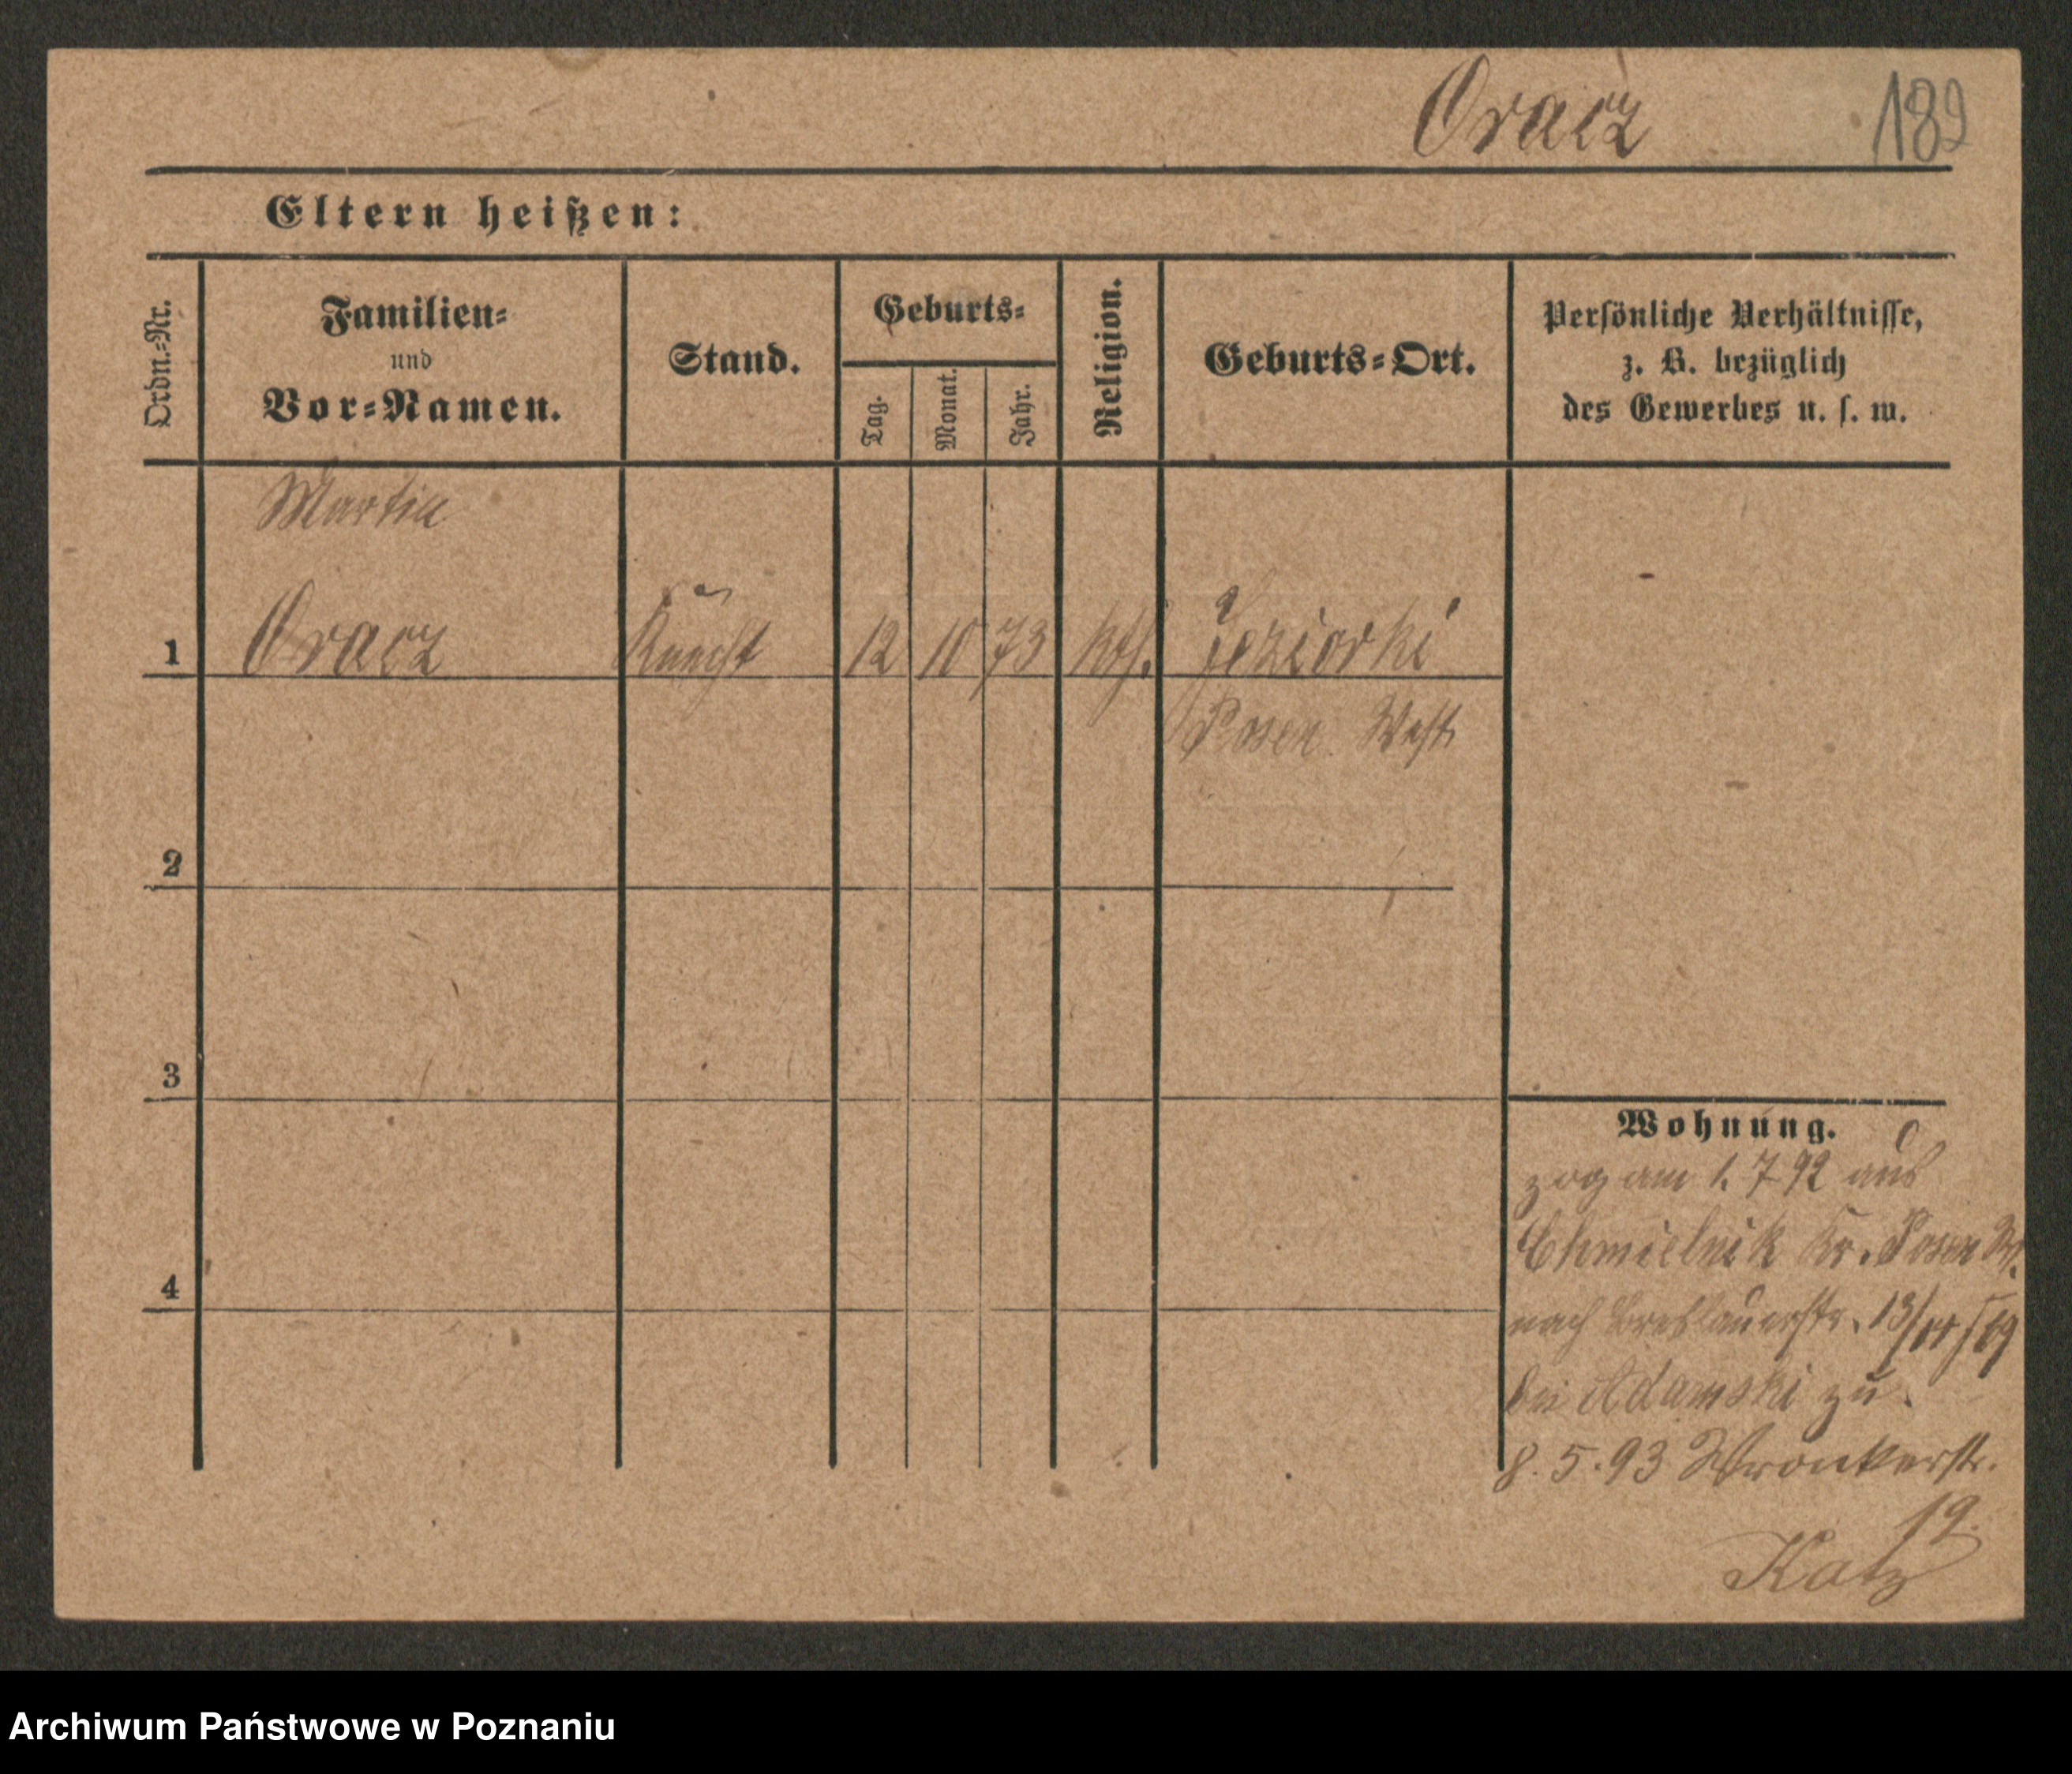 Oracz 189
Eltern heißen:
Ordn.-Nr.
Familien-
und
Vor-Namen.
Stand.
Geburts-
Tag.
Monat.
Jahr.
Religion.
Geburts-Ort.
Persönliche Verhältnisse,
z. B. bezüglich
des Gewerbes u. s. w.
Martin
1 Oracz Knecht 12 10 73 kth. Jeziorki
Posen West
2
3
4
Wohnung.
zog am 1. 7 92 aus
Chmielnik Kr. Posen W.
nach Breslauerstr. 13/
bei Adamski zu.
8. 5. 93 Wronkerstr.
19.
Katz
Archiwum Państwowe w Poznaniu